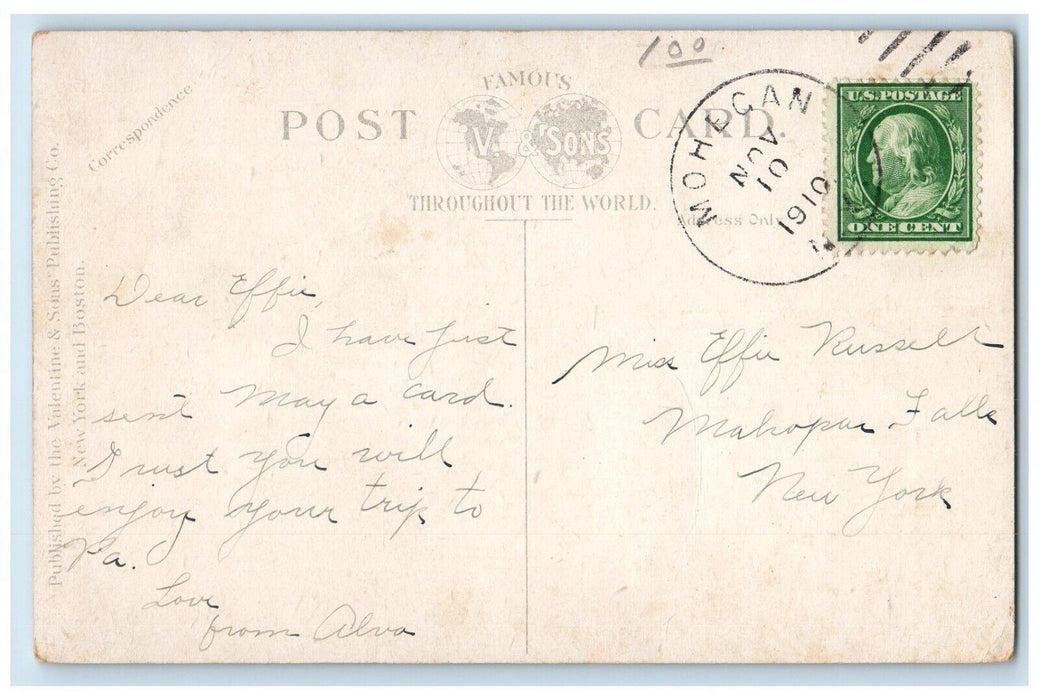 1.00
FAMOUS
POST CARD.
V. & SONS
THROUGHOUT THE WORLD.
Correspondence
Address Only
Published by the Valentine & Sons' Publishing Co.
New York and Boston.
MOHEGAN
NOV
10
1910
U.S. POSTAGE
ONE CENT
Dear Effie,
I have just
sent May a card.
Trust you will
enjoy your trip to
Pa.
Love
from Alva
Miss Effie Russell
Mahopac Falls
New York